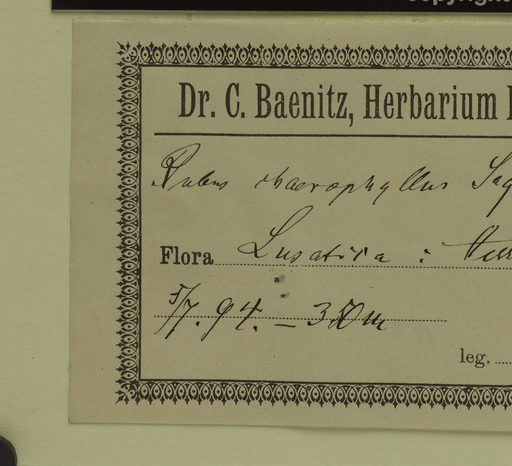 copyright
Dr. C. Baenitz, Herbarium
Rubus chaerophyllus Sag
Flora Lusatica :
5/7. 94. – 350 m
leg.